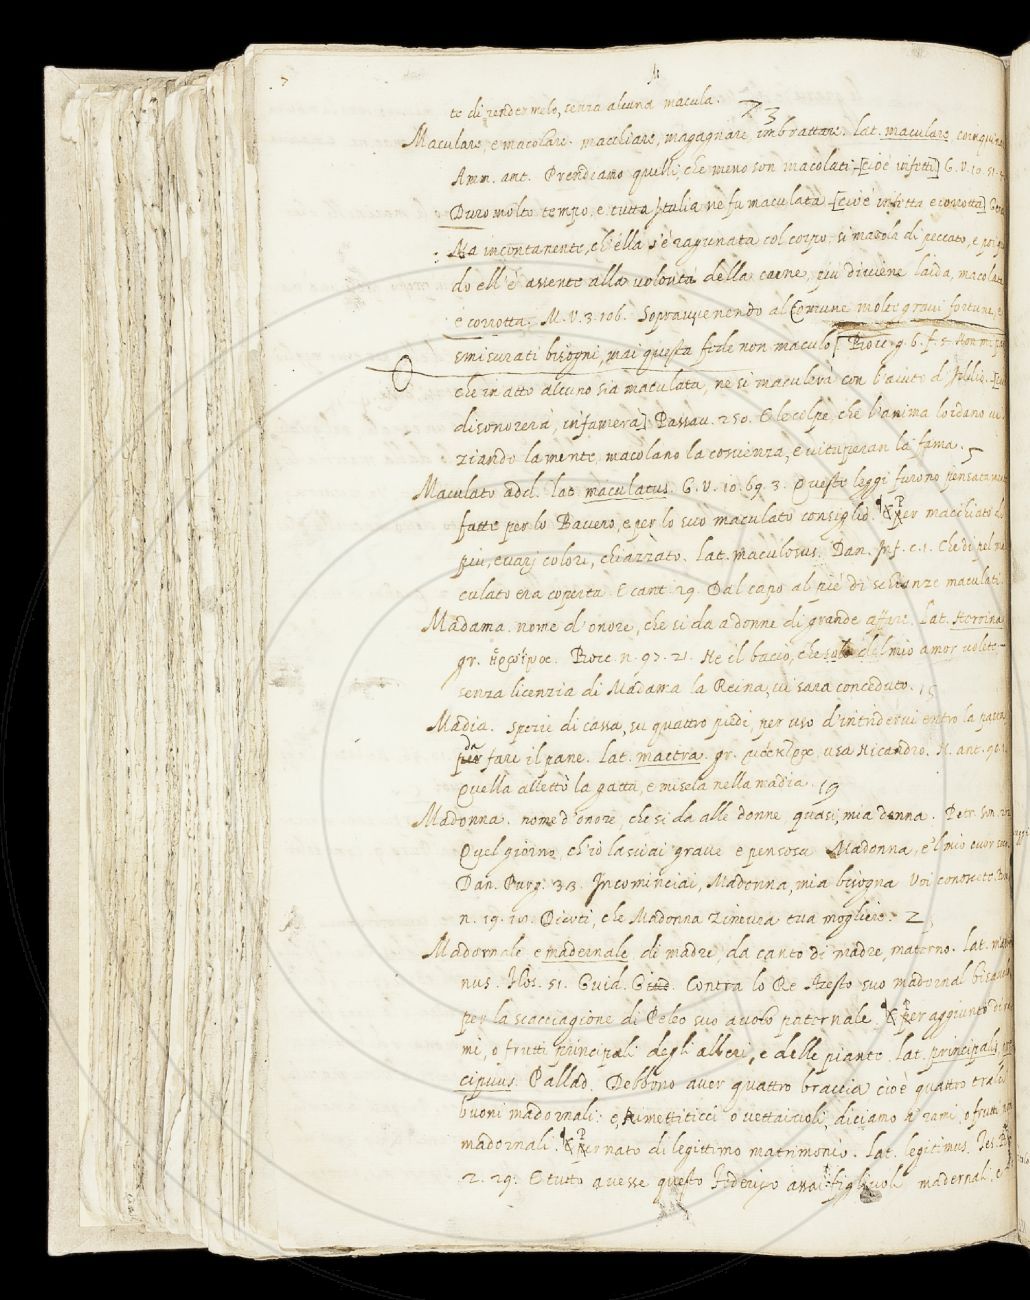 te di rendermelo, senza alcuna macula.
23
Maculare, e macolare. macchiare, magagnare imbrattare. Lat. maculare, coinquinare
Amm. ant. Prendiamo quelli, che meno son macolati [cioè infetti] G. V. 10. 51.
Duro molto tempo, e tutta Italia ne fu maculata [cioè infetta e corrotta]
Ma incontanente, ch'ella s'è ragunata col corpo, si macola di peccato, e poi
do ell'è assente alla volontà della carne, più diviene laida, macolata
e corrotta. M. V. 3. 106. Sopravvenendo al Comune molte gravi fortune, e
smisurati bisogni, mai questa fede non maculò [Bocc. g. 6. f. 5. Non mi
che in atto alcuno sia maculata, ne si maculerà con l'aiuto d'Iddio. [cioè
disonorerà, infamerà] Passav. 250. E le colpe, che l'anima lordano, vi
ziando la mente, macolano la coscienza, e vituperan la fama. 5
Maculato add. Lat. maculatus. G. V. 10. 69. 3. Queste leggi furono pensatamente
fatte per lo Bavero, e per lo suo maculato consiglio. & Per macchiato di
più, e varj colori, chiazzato. Lat. maculosus. Dan. Inf. c. 1. Che di pel ma
culato era coperta. E cant. 29. Dal capo al piè di schianze maculati.
Madama. nome d'onore, che si da a donne di grande affare. Lat. Herrina
gr. Bocc. n. 97. 21. Ne il bacio, che solo dal mio amor volete,
senza licenzia di Madama la Reina, vi sarà conceduto. 15
Madia. Spezie di cassa, su quattro piedi, per uso d'intridervi entro la pasta
da far il pane. Lat. mactra. gr. usa Nicandro. N. ant. 90.
Quella allettò la gatta, e misela nella madia. 19
Madonna. nome d'onore, che si da alle donne, quasi, mia donna. Petr. Son.
Quel giorno, ch'io lasciai grave e pensosa Madonna, e'l mio cuor seco
Dan. Purg. 33. Incominciai, Madonna, mia bisogna Voi conoscete.
n. 19. Dicoti, che Madonna Zinevra tua mogliere. 2
Madornale e madernale, di madre, da canto di madre, materno. Lat. mater
nus. Contra lo Re suo madornal bisavolo
per la scacciagione di Peleo suo avolo paternale. & Per aggiunto di ra
mi, o frutti principali degli alberi, e delle piante. Lat. principalis, prae
cipuus. Pallad. Debbono aver quattro braccia cioè quattro tralci
buoni madornali: e rimettiticci o vettaiuoli diciamo a rami, o frutti non
madornali. & Per nato di legittimo matrimonio. Lat. legitimus. Tes. Br.
2. 29. E tutto avesse questo Federigo assai figliuoli madernali, e